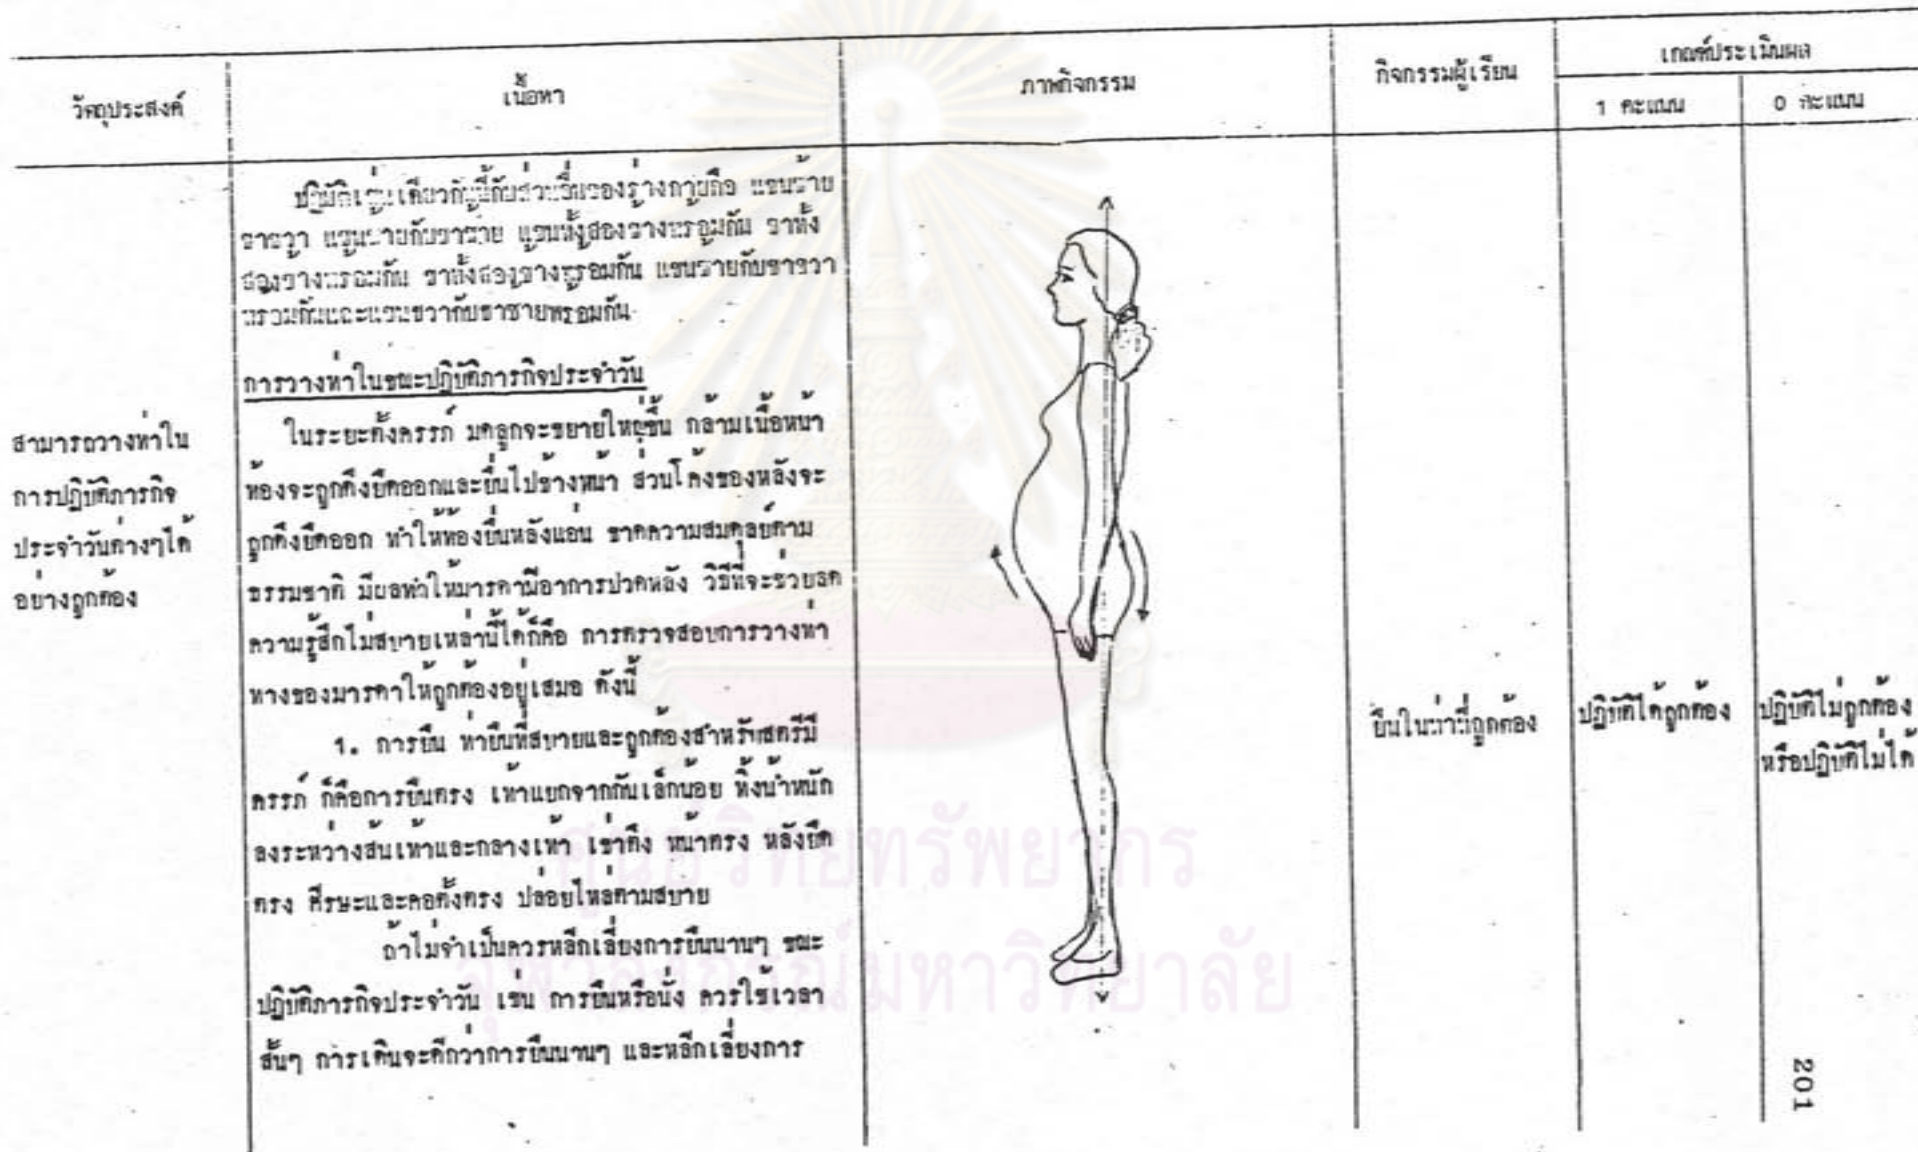 วัตถุประสงค์
เนื้อหา
ภาพกิจกรรม
กิจกรรมผู้เรียน
เกณฑ์ประเมินผล
1 คะแนน
0 คะแนน
ปฏิบัติเช่นเดียวกันนี้กับส่วนอื่นของร่างกายคือ แขนซ้าย
ขาขวา แขนซ้ายกับขาซ้าย แขนทั้งสองข้างพร้อมกัน ขาทั้ง
สองข้างพร้อมกัน ขาทั้งสองข้างพร้อมกัน แขนซ้ายกับขาขวา
พร้อมกันและแขนขวากับขาซ้ายพร้อมกัน
การวางท่าในขณะปฏิบัติภารกิจประจำวัน
สามารถวางท่าใน
การปฏิบัติภารกิจ
ประจำวันต่างๆได้
อย่างถูกต้อง
ในระยะตั้งครรภ์ มดลูกจะขยายใหญ่ขึ้น กล้ามเนื้อหน้า
ท้องจะถูกดึงยืดออกและยื่นไปข้างหน้า ส่วนโค้งของหลังจะ
ถูกดึงยืดออก ทำให้ท้องยื่นหลังแอ่น ขาดความสมดุลย์ตาม
ธรรมชาติ มีผลทำให้มารดามีอาการปวดหลัง วิธีที่จะช่วยลด
ความรู้สึกไม่สบายเหล่านี้ได้ก็คือ การตรวจสอบการวางท่า
ทางของมารดาให้ถูกต้องอยู่เสมอ ดังนี้
1. การยืน ท่ายืนที่สบายและถูกต้องสำหรับสตรีมี
ครรภ์ ก็คือการยืนตรง เท้าแยกจากกันเล็กน้อย ทิ้งน้ำหนัก
ลงระหว่างส้นเท้าและกลางเท้า เข่าตึง หน้าตรง หลังยืด
ตรง ศีรษะและคอตั้งตรง ปล่อยไหล่ตามสบาย
ถ้าไม่จำเป็นควรหลีกเลี่ยงการยืนนานๆ ขณะ
ปฏิบัติภารกิจประจำวัน เช่น การยืนหรือนั่ง ควรใช้เวลา
สั้นๆ การเดินจะดีกว่าการยืนนานๆ และหลีกเลี่ยงการ
ยืนในท่าที่ถูกต้อง
ปฏิบัติได้ถูกต้อง
ปฏิบัติไม่ถูกต้อง
หรือปฏิบัติไม่ได้
ศูนย์วิทยทรัพยากร
จุฬาลงกรณ์มหาวิทยาลัย
201